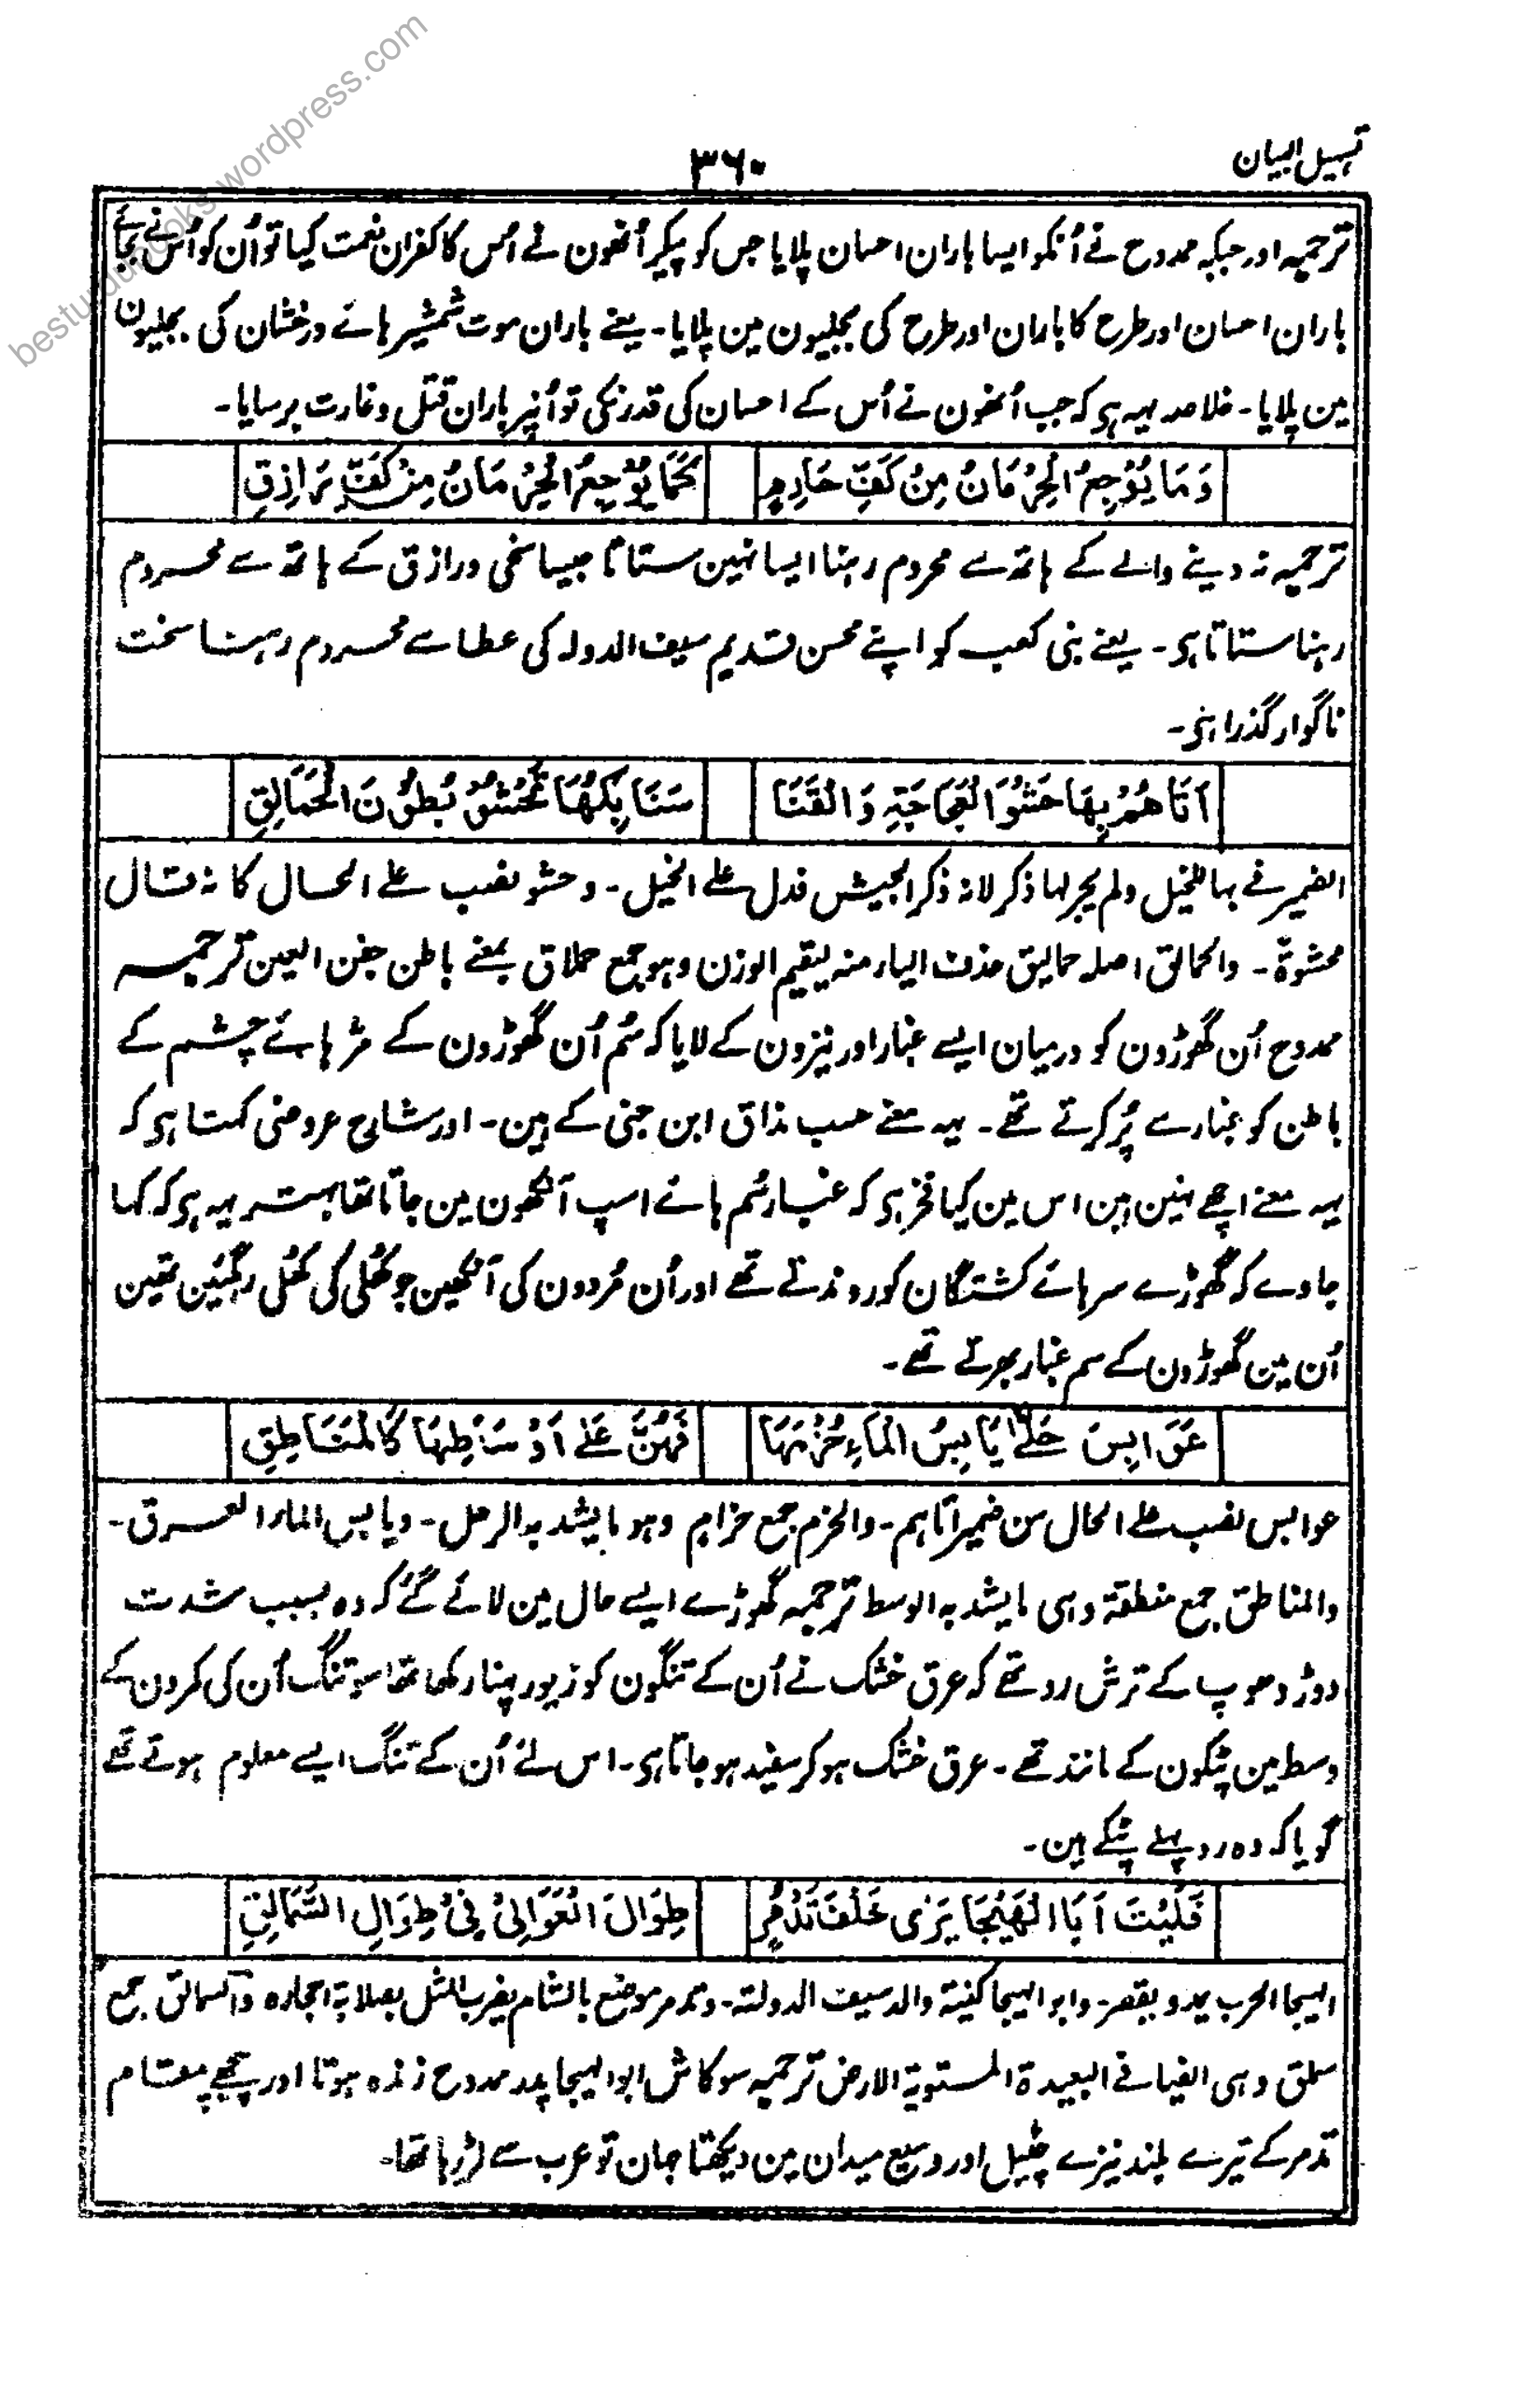 تسہیل البیان
۳۶۰
ترجمہ اور جبکہ ممدوح نے اُنکو ایسا باران احسان پلایا جس کو پیکر اُنھون نے اُس کا کفران نعمت کیا تو اُن کو اُسنے بجائے
باران احسان اور طرح کا باران اور طرح کی بجلیون مین پلایا۔ یعنے باران موت شمشیر ہائے درخشان کی بجلیون
مین پلایا۔ خلاصہ یہہ ہی کہ جب اُنھون نے اُس کے احسان کی قدر نکی تو اُنپر باران قتل و غارت برسایا۔
وَمَا يُوْجِعُ الْحِرْمَانُ مِنْ كَفِّ حَارِمٍ كَمَا يُوْجِعُ الْحِرْمَانُ مِنْ كَفِّ رَازِقِ
ترجمہ نہ دینے والے کے ہاتھ سے محروم رہنا ایسا نہین ستاتا جیسا سخی و رازق کے ہاتھ سے محروم
رہنا ستاتا ہی۔ یعنے بنی کعب کو اپنے محسن قدیم سیف الدولہ کی عطا سے محروم رہنا سخت
ناگوار گذرا ہی۔
اَتَاهُمْ بِهَا حَشْوَ الْعَجَاجَةِ وَالْقَنَا سَنَابِكُهَا تَحْشُوْ بُطُوْنَ الْحَمَالِقِ
الضمیر فے بہا للخیل ولم یجر لہا ذکر لانہ ذکر الجیش فدل علے الخیل۔ و حشو نصب علے الحال کانہ قال
محشوۃ۔ والحمالق اصلہ حمالیق حذف الیاء منہ لیقیم الوزن وہو جمع حملاق بمعنے باطن جفن العین ترجمہ
ممدوح اُن گھوڑون کو درمیان ایسے غبار اور نیزون کے لایا کہ سُم اُن گھوڑون کے مژہائے چشم کے
باطن کو غبار سے پُر کرتے تھے۔ یہہ معنے حسب مذاق ابن جنی کے ہین۔ اور شارح عروضی کہتا ہی کہ
یہہ معنے اچھے نہین ہین اس مین کیا فخر ہی کہ غبار سُم ہائے اسپ آنکھون مین جاتا تھا بہتر یہہ ہی کہ کہا
جاوے کہ گھوڑے سرہائے کشتگان کو روندتے تھے اور اُن مُردون کی آنکھین جو کھُلی کی کھُلی رہگئین تھین
اُن مین گھوڑون کے سم غبار بھرتے تھے۔
عَوَابِسَ حَلَّى يَابِسُ الْمَاءِ حُزْمَهَا فَهُنَّ عَلٰى اَوْسَاطِهَا كَالْمَنَاطِقِ
عوابس نصب علے الحال من ضمیر اتاہم۔ والحزم جمع حزام وہو ما یشد بہ الرحل۔ ویابس الماء العرق۔
والمناطق جمع منطقۃ وہی ما یشد بہ الوسط ترجمہ گھوڑے ایسے حال مین لائے گئے کہ وہ بسبب شدت
دوڑ دھوپ کے ترش رو تھے کہ عرق خشک نے اُن کے تنگون کو زیور پہنا رکھا تھا سو تنگ اُن کی کمرون کے
وسط مین پٹکون کے مانند تھے۔ عرق خشک ہو کر سفید ہو جاتا ہی۔ اس لئے اُن کے تنگ ایسے معلوم ہوتے تھے
گویا کہ وہ روپہلے پٹکے ہین۔
فَلَيْتَ اَبَا الْهَيْجَا يَرٰى خَلْفَ تَدْمُرٍ طِوَالَ الْعَوَالِيْ فِيْ طِوَالِ السَّمَالِقِ
الہیجا الحرب یمد و یقصر۔ و ابو الہیجا کنیۃ والد سیف الدولۃ۔ وتدمر موضع بالشام یضرب المثل بصلابۃ احجارہ والسمالق جمع
سملق وہی الفیافے البعیدۃ المستویۃ الارض ترجمہ سو کاش ابو الہیجا پدر ممدوح زندہ ہوتا اور پیچھے مقام
تدمر کے تیرے بلند نیزے چٹیل اور وسیع میدان مین دیکھتا جہان تو عرب سے لڑ رہا تھا۔
besturdubooks.wordpress.com